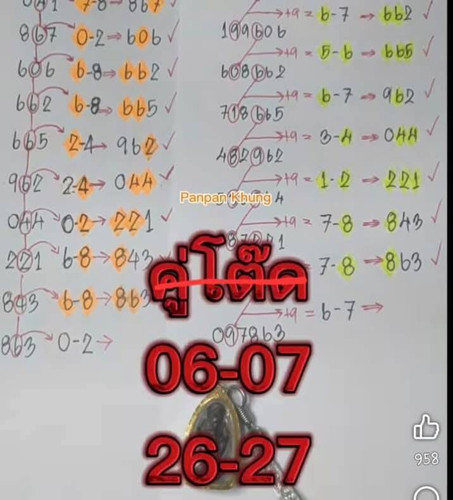 867 0-2→606 ✓
606 6-8→662 ✓
662 6-8→665 ✓
665 2-4→962 ✓
962 2-4→044 ✓
044 0-2→221 ✓
221 6-8→843
843 6-8→863
863 0-2→
+9 = 6-7 → 662 ✓
199606
+9 = 5-6 → 665 ✓
608662
+9 = 6-7 → 962 ✓
718665
+9 = 3-4 → 044 ✓
482962
+9 = 1-2 → 221 ✓
Panpan Khung
+9 = 7-8 → 843 ✓
7-8 → 863 ✓
+9 = 6-7 →
097863
คู่โต๊ด
06-07
26-27
958